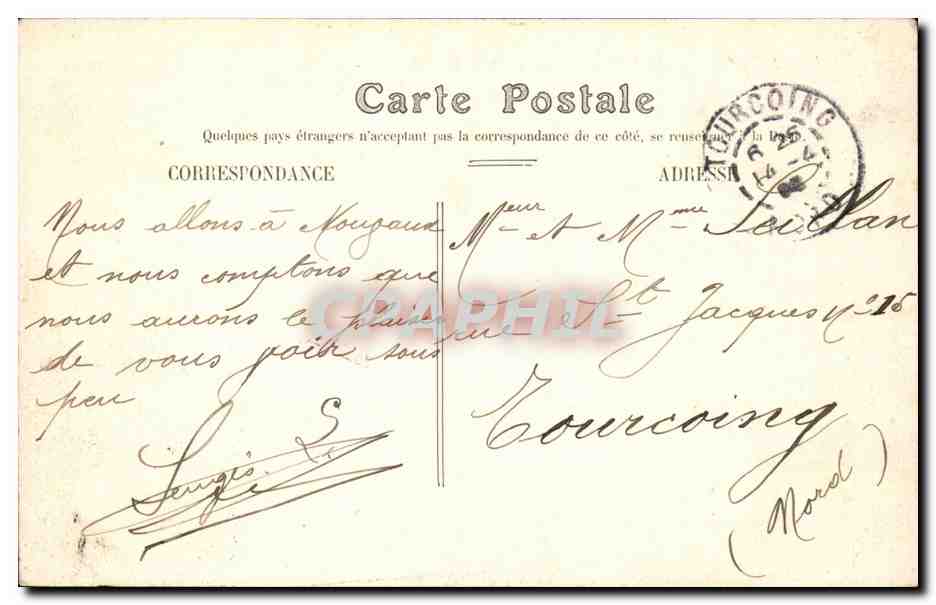 Carte Postale
Quelques pays étrangers n'acceptant pas la correspondance de ce côté, se renseigner à la Poste
CORRESPONDANCE
ADRESSE
TOURCOING
Nous allons à
et nous comptons que
nous aurons le plaisir
de vous voir sous
peu
S
Meur et Mme
rue St Jacques no 15
Tourcoing
(Nord)
CPAPHIL